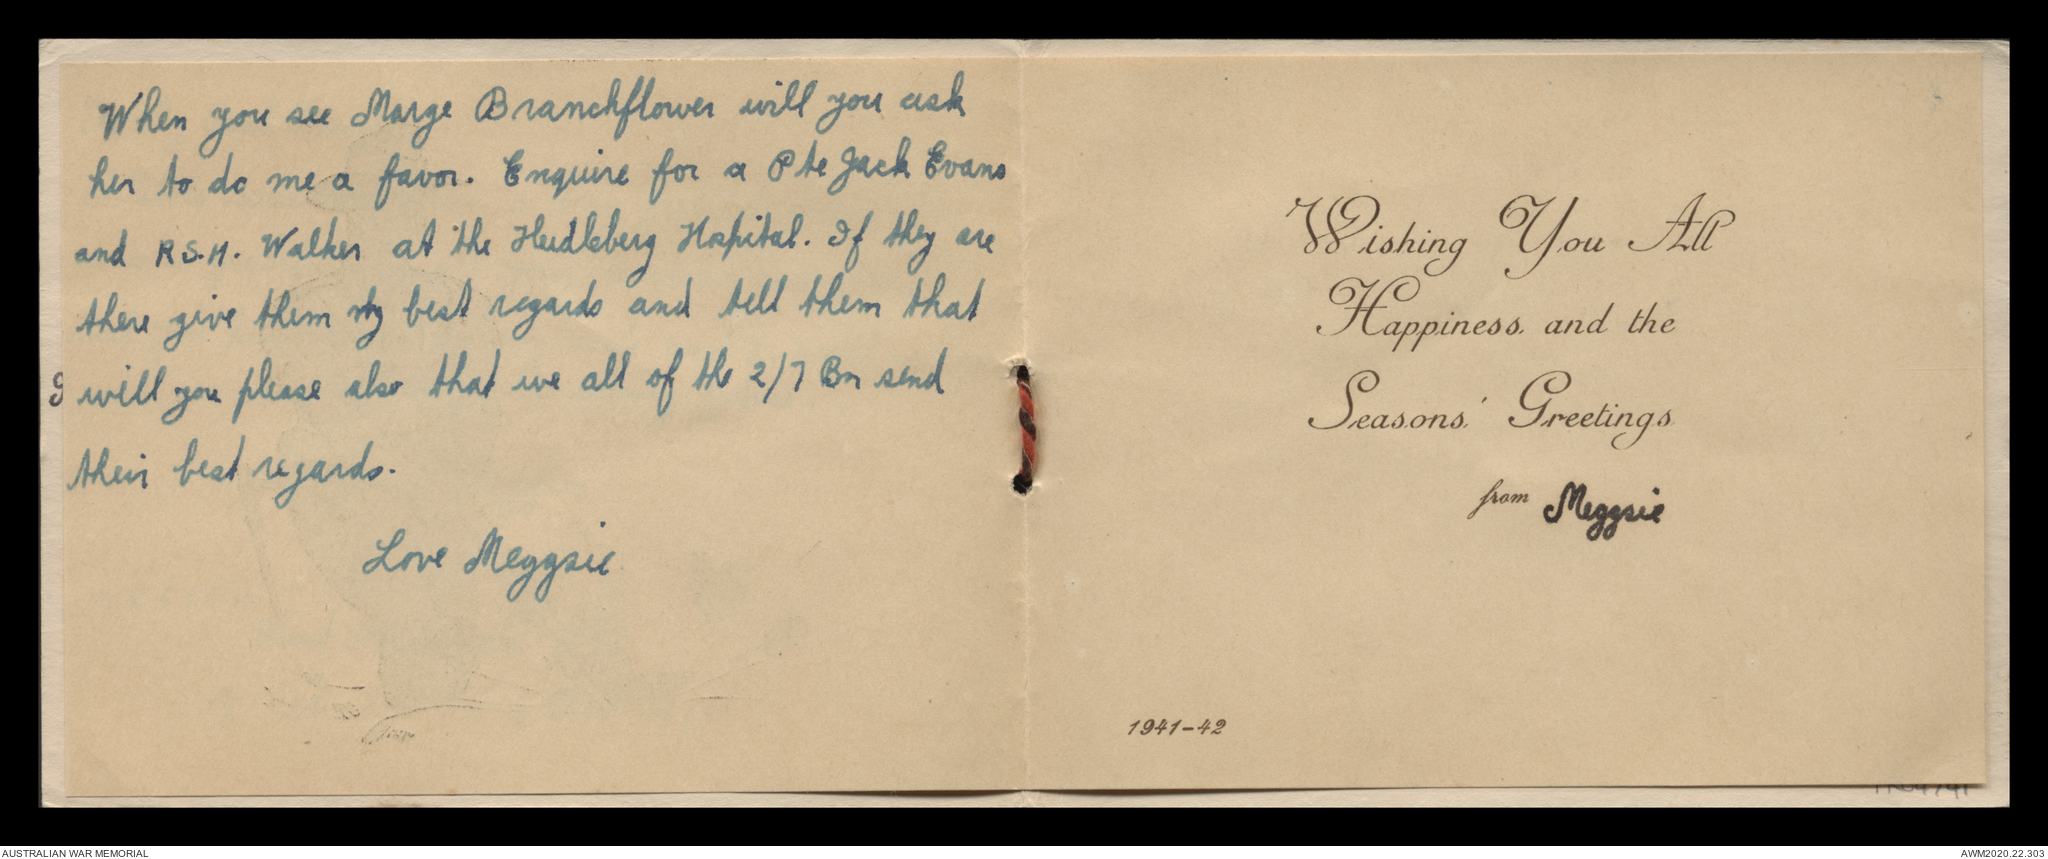 When you see Marge Branchflower will you ask
her to do me a favor. Enquire for a Pte Jack Evans
and R.S.M. Walker at the Heidleberg Hospital. If they are
there give them my best regards and tell them that
will you please also that we all of the 2/7 Bn send
their best regards.
Love Meggsie
Wishing You All
Happiness and the
Seasons' Greetings
from Meggsie
1941-42
AUSTRALIAN WAR MEMORIAL
AWM2020.22.303